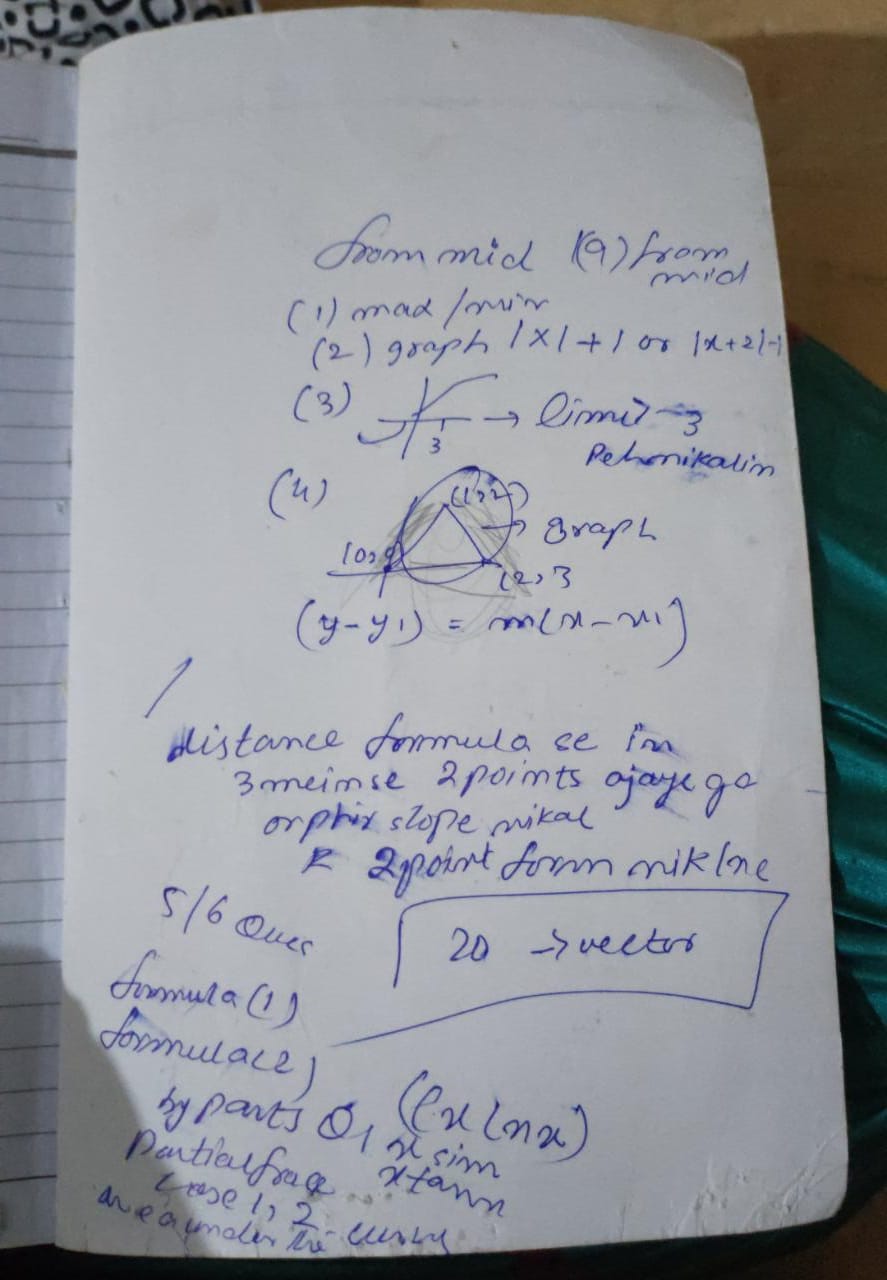 from mid (9) from
mid
(1) max/min
(2) graph |x|+1 or |x+2|-1
(3) 3 → limit 3
(4) (1,2)
→ graph
(2,3
(y-y1) = m(x-x1)
distance formula se in
3 meinse 2 points ajaye ga
or phir slope nikal
2 point form niklne
5/6 Ques
20 → vector
formula (1)
formula (2)
by parts Q1 (ex lnx)
x sin
x tanx
Partial frac
case 1, 2
area under the curve